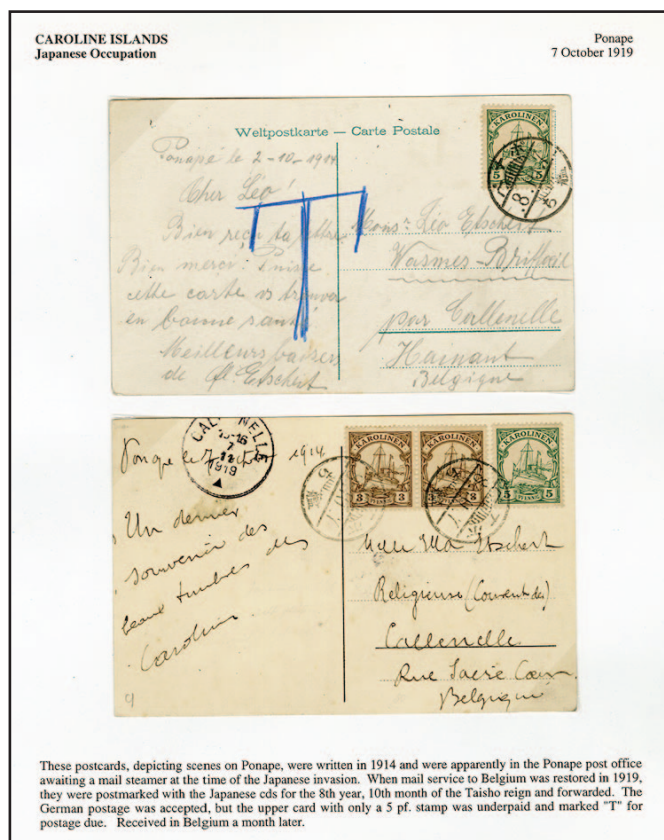 CAROLINE ISLANDS
Japanese Occupation
Ponape
7 October 1919
Weltpostkarte — Carte Postale
KAROLINEN
5 5
Ponapé le 2-10-1914
Cher Léo!
Bien reçu ta lettre
Bien merci. Puisse
cette carte vs trouver
en bonne santé
Meilleurs baisers
de Etschert
T
Monsr. Léo Etschert
Wasmes-Briffoeil
par Callenelle
Hainaut
Belgique
CALLENELLE
15-16
7
1919
1914
Un dernier
souvenir des
beaux timbres des
Carolines
KAROLINEN
3 3
KAROLINEN
3 3
KAROLINEN
5 5
Etschert
Religieuse (Couvent de)
Callenelle
Rue Sacré Coeur
Belgique
4
These postcards, depicting scenes on Ponape, were written in 1914 and were apparently in the Ponape post office
awaiting a mail steamer at the time of the Japanese invasion. When mail service to Belgium was restored in 1919,
they were postmarked with the Japanese cds for the 8th year, 10th month of the Taisho reign and forwarded. The
German postage was accepted, but the upper card with only a 5 pf. stamp was underpaid and marked "T" for
postage due. Received in Belgium a month later.